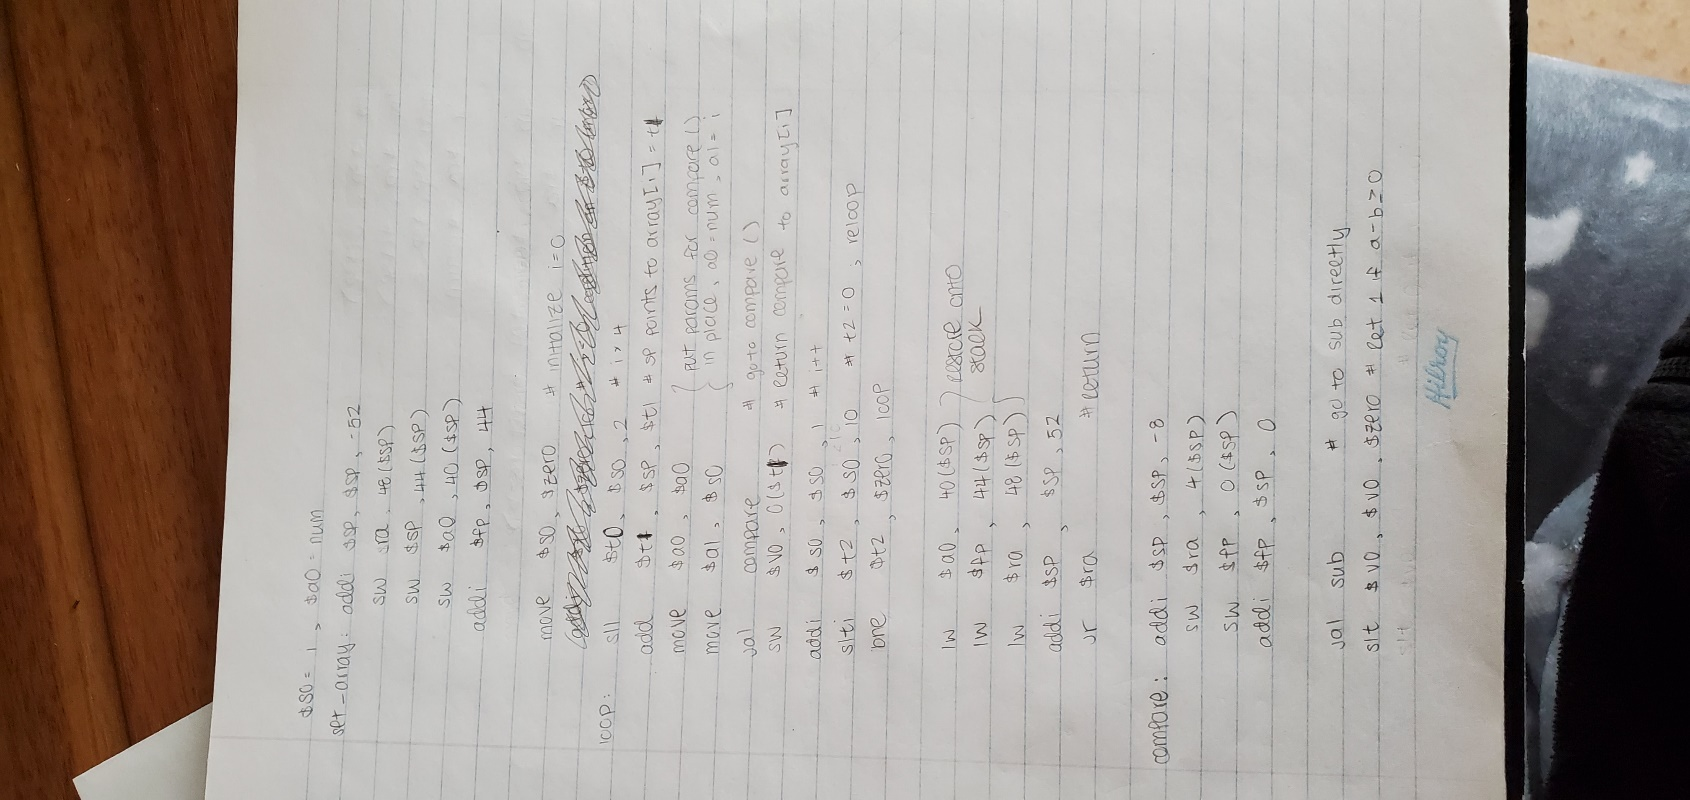 $s0 = i, $a0 = num
set-array: addi $sp, $sp, -52
sw $ra, 48($sp)
sw $sp, 44($sp)
sw $a0, 40($sp)
addi $fp, $sp, 44
move $s0, $zero # initialize i=0
loop: sll $t0, $s0, 2 # i×4
add $t1, $sp, $t1 # sp points to array[i] =
move $a0, $a0 { put params for compare()
move $a1, $s0 { in place, a0=num, a1=i
jal compare # go to compare()
sw $v0, 0($t1) # return compare to array[i]
addi $s0, $s0, 1 # i++
slti $t2, $s0, 10 # t2=0, reloop
bne $t2, $zero, loop
lw $a0, 40($sp) } restore onto
lw $fp, 44($sp) stack
lw $ra, 48($sp) }
addi $sp, $sp, 52
jr $ra # return
compare: addi $sp, $sp, -8
sw $ra, 4($sp)
sw $fp, 0($sp)
addi $fp, $sp, 0
jal sub # go to sub directly
slt $v0, $v0, $zero # ret 1 if a-b≥0
slt
Hilroy